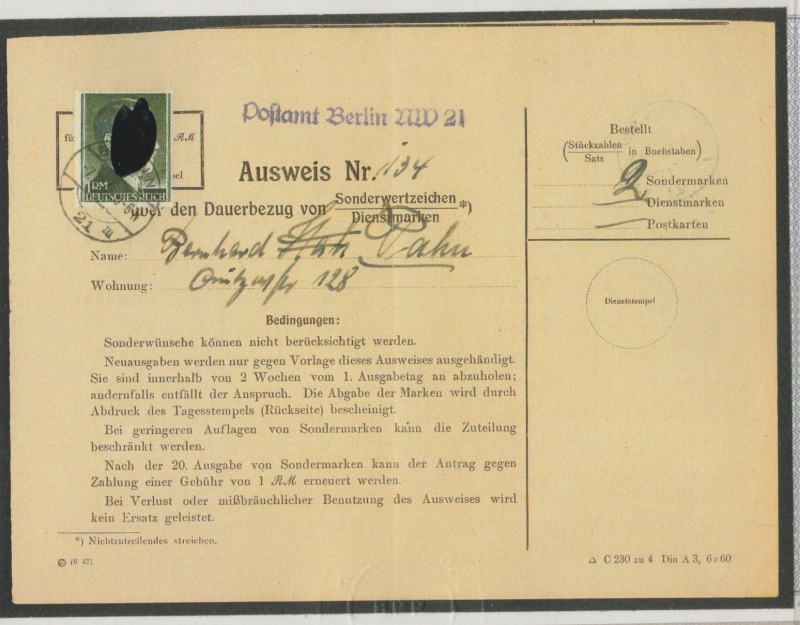 Postamt Berlin NW 21
RM
1
RM
DEUTSCHES REICH
21 m
Ausweis Nr. 134
über den Dauerbezug von Sonderwertzeichen *)
Dienstmarken
Name: Bernhard Hahn
Wohnung: 128
Bedingungen:
Sonderwünsche können nicht berücksichtigt werden.
Neuausgaben werden nur gegen Vorlage dieses Ausweises ausgehändigt.
Sie sind innerhalb von 2 Wochen vom 1. Ausgabetag an abzuholen;
andernfalls entfällt der Anspruch. Die Abgabe der Marken wird durch
Abdruck des Tagesstempels (Rückseite) bescheinigt.
Bei geringeren Auflagen von Sondermarken kann die Zuteilung
beschränkt werden.
Nach der 20. Ausgabe von Sondermarken kann der Antrag gegen
Zahlung einer Gebühr von 1 RM erneuert werden.
Bei Verlust oder mißbräuchlicher Benutzung des Ausweises wird
kein Ersatz geleistet.
*) Nichtzutreffendes streichen.
(6 42)
Bestellt
(Stückzahlen
Satz in Buchstaben)
2 Sondermarken
Dienstmarken
Postkarten
Dienststempel
C 230 zu 4 Din A 3, 6 e 60